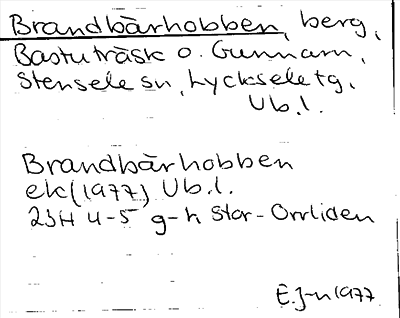 Brandbärhobben, berg,
Bastuträsk o. Gunnarn,
Stensele sn, Lycksele tg.
Vb.l.
Brandbärhobben
ek (1977) Vb.l.
23H 4-5 g-h Stor-Orrliden
E.J-n 1977